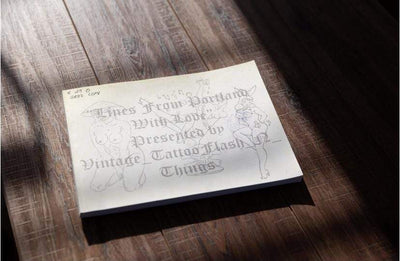 "Lines From Portland
With Love"
Presented by
Vintage Tattoo Flash
Things